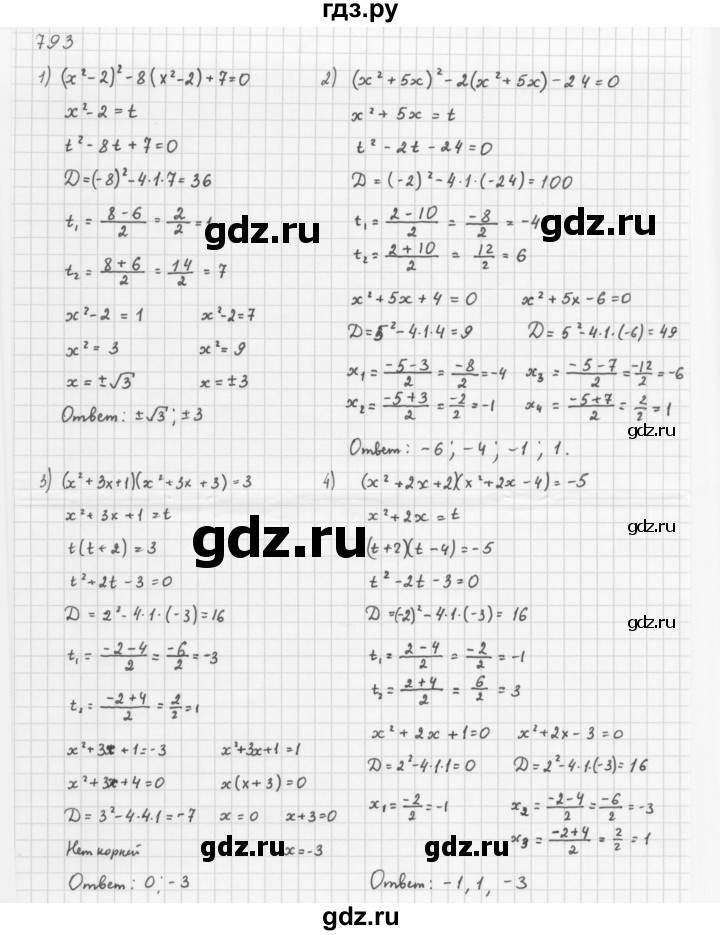 гдз.ру
793
1) (x²-2)²-8(x²-2)+7=0
x²-2=t
t²-8t+7=0
D=(-8)²-4·1·7=36
t₁ = (8-6)/2 = 2/2 = 1
t₂ = (8+6)/2 = 14/2 = 7
x²-2=1 x²-2=7
x²=3 x²=9
x=±√3 x=±3
Ответ: ±√3; ±3
2) (x²+5x)²-2(x²+5x)-24=0
x²+5x=t
t²-2t-24=0
D=(-2)²-4·1·(-24)=100
t₁ = (2-10)/2 = -8/2 = -4
t₂ = (2+10)/2 = 12/2 = 6
x²+5x+4=0 x²+5x-6=0
D=5²-4·1·4=9 D=5²-4·1·(-6)=49
x₁ = (-5-3)/2 = -8/2 = -4 x₃ = (-5-7)/2 = -12/2 = -6
x₂ = (-5+3)/2 = -2/2 = -1 x₄ = (-5+7)/2 = 2/2 = 1
Ответ: -6; -4; -1; 1.
3) (x²+3x+1)(x²+3x+3)=3
x²+3x+1=t
t(t+2)=3
t²+2t-3=0
D=2²-4·1·(-3)=16
t₁ = (-2-4)/2 = -6/2 = -3
t₂ = (-2+4)/2 = 2/2 = 1
x²+3x+1=-3 x²+3x+1=1
x²+3x+4=0 x(x+3)=0
D=3²-4·4·1=-7 x=0 x+3=0
Нет корней x=-3
Ответ: 0; -3
4) (x²+2x+2)(x²+2x-4)=-5
x²+2x=t
(t+2)(t-4)=-5
t²-2t-3=0
D=(-2)²-4·1·(-3)=16
t₁ = (2-4)/2 = -2/2 = -1
t₂ = (2+4)/2 = 6/2 = 3
x²+2x+1=0 x²+2x-3=0
D=2²-4·1·1=0 D=2²-4·1·(-3)=16
x₁ = -2/2 = -1 x₂ = (-2-4)/2 = -6/2 = -3
x₃ = (-2+4)/2 = 2/2 = 1
Ответ: -1, 1, -3
gdz.ru
gdz.ru
gdz.ru
gdz.ru
gdz.ru
gdz.ru
gdz.ru
gdz.ru
gdz.ru